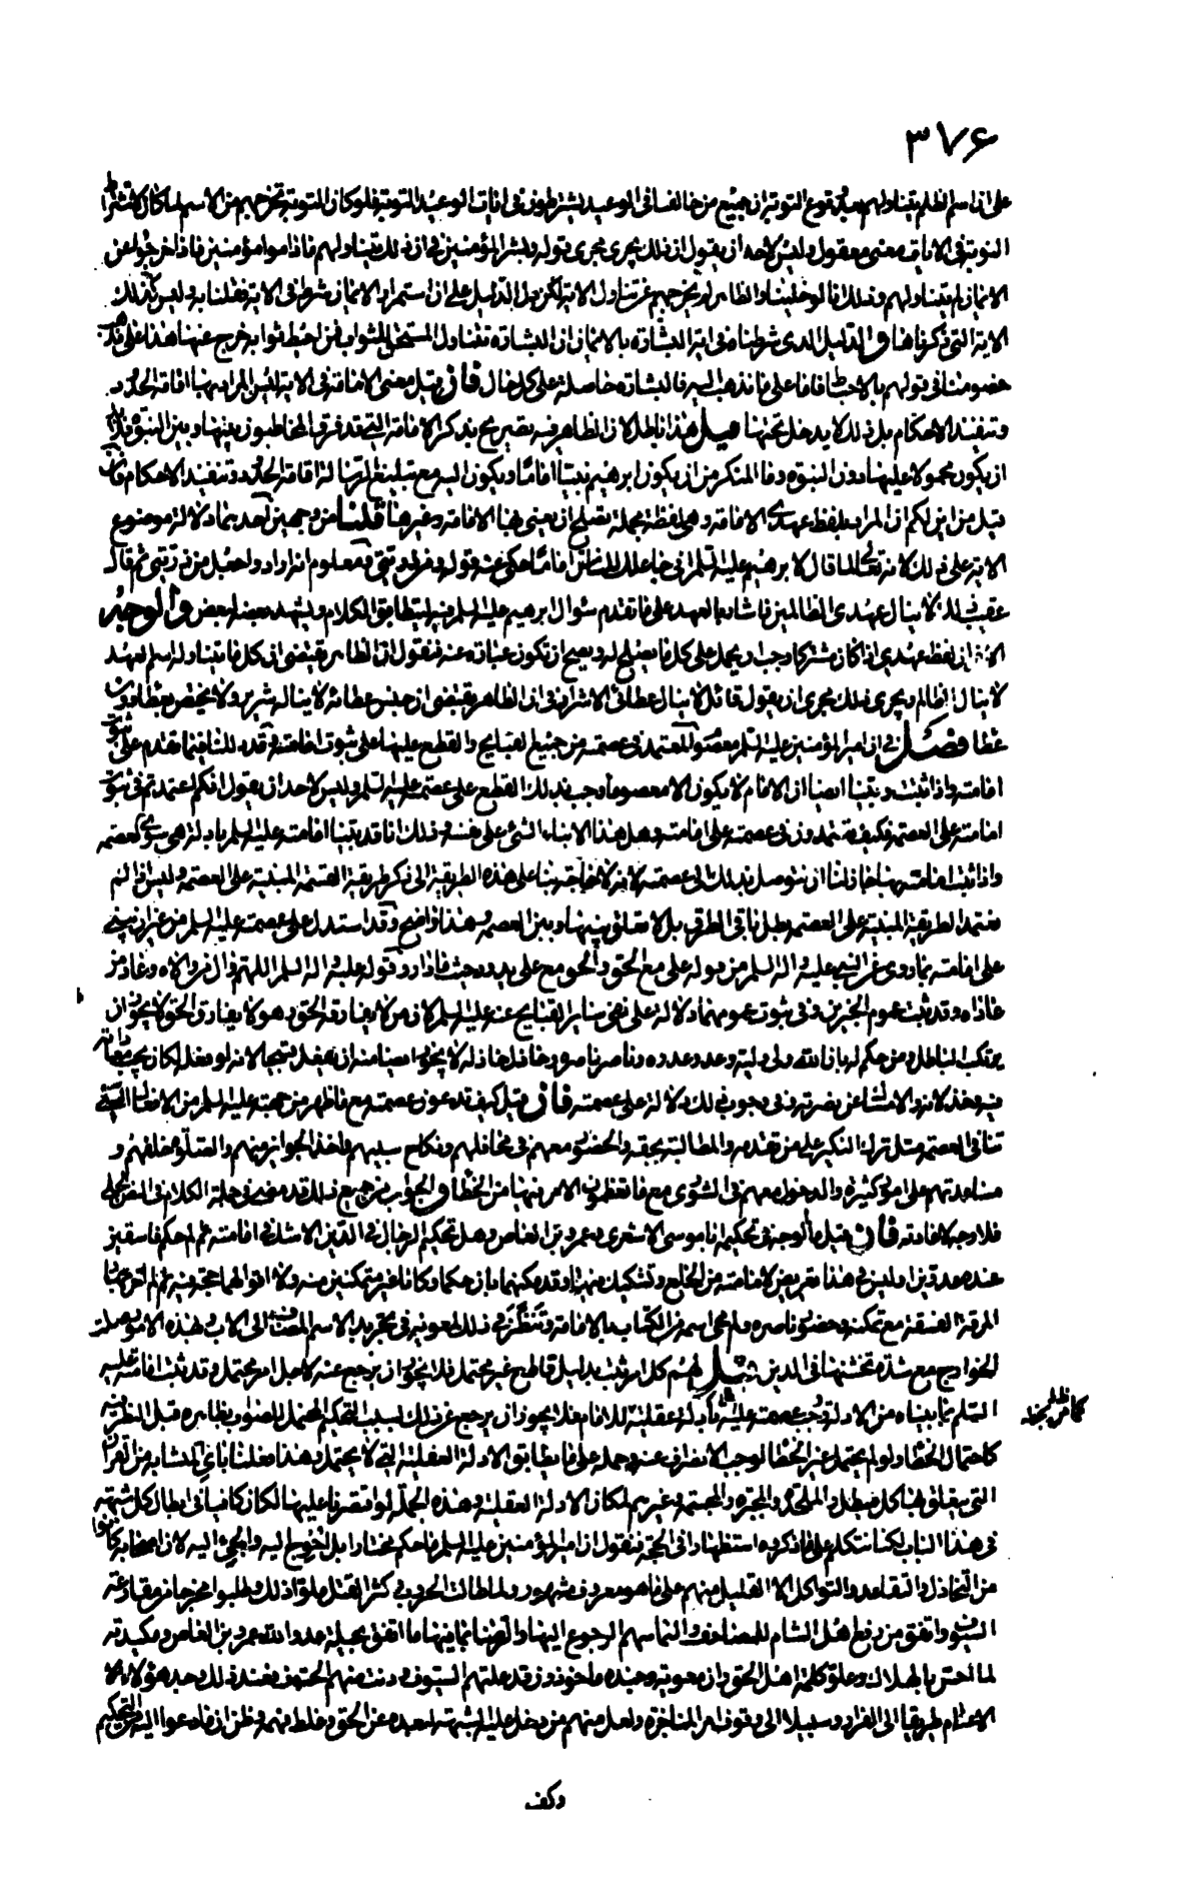 ٣٧۶
على ان اسم الظلم يتناولهم بعد وقوع التوبة ان جميع من خالفنا فى الوعيد يشترطون فى ايات الوعيد التوبة فلو كان التوبة تخرجهم من الاسم لما كان لاشتراط
التوبة فى الايات معنى معقول وليس لاحد ان يقول ان ذلك يجرى مجرى قوله وبشر المؤمنين فى ان ذلك يتناولهم ماداموا مؤمنين فاذا خرجوا عن
الايمان لم يتناولهم وذلك انا لو خلينا والظاهر لم يخرجهم عن تناول الاية لكن دل الدليل على ان استمرار الايمان شرط فى الاية فقلنا به وليس كذلك
الاية التى ذكرناها والدليل الذى شرطناه فى اية البشارة بالايمان ان البشارة تتناول المستحق للثواب فمن احبط ثوابه خرج عنها هذا على
خصومنا فى قولهم بالاحباط فاما على ما نذهب اليه فالبشارة حاصلة على كل حال فان قيل معنى الامامة فى الاية ليس المراد بها اقامة الحدود
وتنفيذ الاحكام بل ذلك لا يدخل تحتها قيل هذا باطل لان الظاهر فيه تصريح بذكر الامامة التى قد فرق المخاطبون بينها وبين النبوة فلا
ان يكون محمولا عليها دون النبوة وما المنكر من ان يكون ابرهيم نبيا اماما ويكون اليه مع تبليغ الرسالة اقامة الحدود وتنفيذ الاحكام فان
قيل من اين لكم ان المراد بلفظ عهدى الامامة وهى لفظة مجملة تصلح ان يعنى بها الامامة وغيرها قلنا من وجهين احدهما دلالة موضوع
الاية على ذلك لانه تعالى لما قال لابرهيم عليه السلم انى جاعلك للناس اماما حكى عنه قوله ومن ذريتى ومعلوم انه اراد واجعل من ذريتى ثم قال
عقيب ذلك لا ينال عهدى الظالمين فاشار بالعهد على ما تقدم سؤال ابرهيم عليه السلم فيه ليتطابق الكلام ويشهد بعضه لبعض والوجه
الاخر ان لفظ عهدى اذا كان مشتركا وجب ان يحمل على كل ما يصلح له ويصح ان تكون عبارة عنه فنقول ان الظاهر يقتضى ان كل ما يتناوله اسم العهد
لا ينال الظالم ويجرى ذلك مجرى ان يقول قائل لا ينال عطائى الاشرار فى ان الظاهر يقتضى ان جنس عطائه لا يناله شرير ولا يختص بعطاء دون
عطا فصل فى ان امير المؤمنين عليه السلم معصوم المعتمد فى عصمته من جميع القبايح والقطع عليها على ثبوت امامته وقد دللنا فيما تقدم على ثبوت
امامته واذا ثبتت وبينا ايضا ان الامام لا يكون الا معصوما وجب بذلك القطع على عصمته عليه السلم وليس لاحد ان يقول انكم اعتمدتم فى ثبوت
امامته على العصمة فكيف تعتمدون فى عصمته على امامته وهل هذا الا بناء الشئ على نفسه وذلك انا قد بينا امامته عليه السلم بادلة هى سوى العصمة
واذا ثبت امامته بها جاز لنا ان نتوصل بذلك الى عصمته لانه لا حاجة بنا على هذه الطريقة الى ذكر طريقة العصمة المبنية على العصمة وليس اذا لم
نعتمد الطريقة المبنية على العصمة بطل باقى الطرق بل لا تعلق بينها وبين العصمة وهذا واضح وقد استدل على عصمته عليه السلم من غير ان يبنى
على امامته بما روى عن النبى عليه وآله السلم من قوله على مع الحق والحق مع على يدور حيث ما دار وقوله عليه وآله السلم اللهم وال من والاه وعاد من
عاداه وقد ثبت عموم الخبرين وفى ثبوت عمومهما دلالة على نفى سائر القبايح عنه عليه السلم لان من لا يفارقه الحق وهو لا يفارق الحق لا يجوز ان
يرتكب الباطل ومن حكم له بان الله ولى وليه وعدو عدوه وناصر ناصره وخاذل خاذله لا يجوز ايضا منه ان يفعل قبيحا لانه لو فعل لكان يجب معاداته
فيه وخذلانه والامتناع عن نصرته وفى وجوب ذلك دلالة على عصمته فان قيل كيف تدعون عصمته مع ما ظهر من جهته عليه السلم من الافعال التى
تنافى العصمة مثل ترك النكير على من تقدمه والمطالبة بحقه والحضور معهم فى محافلهم ونكاح سبيهم واخذ الجوائز منهم والصلاة خلفهم و
مساعدتهم على امور كثيرة والدخول معهم فى الشورى مع ما تعظمون الامر فيها من الخطا والجواب من جميع ذلك قد مضى فى جملة الكلام فى النص الجلى
فلا وجه لاعادته فان قيل ما الوجه فى تحكيمه ابا موسى الاشعرى وعمرو بن العاص وهل تحكيم الرجال فى الدين الا شك فى امامته ثم لم حكم فاسقين
عنده عدوين او ليس فى هذا تعريض لامامته من الخلع وتشكيك فيها وقد مكنهما بان حكما وكانا غير متمكنين منه ولا اقوالهما حجة فيه ثم
المرقة الفسقة مع تمكنه وحضور ناصره ولم محى اسمه من الكتاب بالامامة وتنظر فى ذلك لمعوية فى تجريد الاسم المضاف الى الاب وبهذه الامور ضلت
الخوارج مع شدة تخشنها فى الدين قيل لهم كل امر ثبت بدليل قاطع غير محتمل فلا يجوز ان يرجع عنه لاجل امر محتمل وقد ثبتت امامته عليه
السلم بما بيناه من الادلة ووجب عصمته عليه السلم بأدلة عقلية للامام فلا يجوز ان يرجع عن ذلك لسبب التحكيم المحتمل للصواب بظاهره قبل النظر فيه
كاحتمال الخطا ولو لم يحتمل غير الخطا لوجب الانصراف عنه وحمله على ما يطابق الادلة العقلية التى لا يحتمل وهذا فعلنا بآى المتشابه من القرآن
التى يتعلق بها كل مبطل والملحدة والمجبرة والمجسمة وغيرهم لمكان الادلة العقلية وهذه الجملة لو اقتصرنا عليها لكان كافيا فى ابطال كل شبهة
فى هذا الباب لكنا نتكلم على ما ذكروه استظهارا فى الحجة فنقول ان امير المؤمنين عليه السلم ما حكم مختارا بل أحوج اليه والجئ اليه لان اصحابه كانوا
من التخاذل والتقاعد والتواكل الا القليل منهم على ما هو معروف مشهور ولما طالت الحروب وكثر القتل ملوا ذلك وطلبوا مخرجا من مقارعة
السيوف واتفق من رفع اهل الشام للمصاحف والتماسهم الرجوع اليها والرضا بما فيها ما اتفق بحيلة عدو الله عمرو بن العاص ومكيدته
لما احس بالهلاك وعلو كلمة اهل الحق وان معوية وجنده ماخوذون قد علتهم السيوف ودنت منهم الحتوف فعند ذلك وجد هؤلاء
الاغتام طريقا الى الفرار وسبيلا الى وقوف امر المناجزة ولعل منهم من دخل عليه الشبهة لبعده عن الحق وغلط فهمه وظن ان ما دعوا اليه من التحكيم
وكف